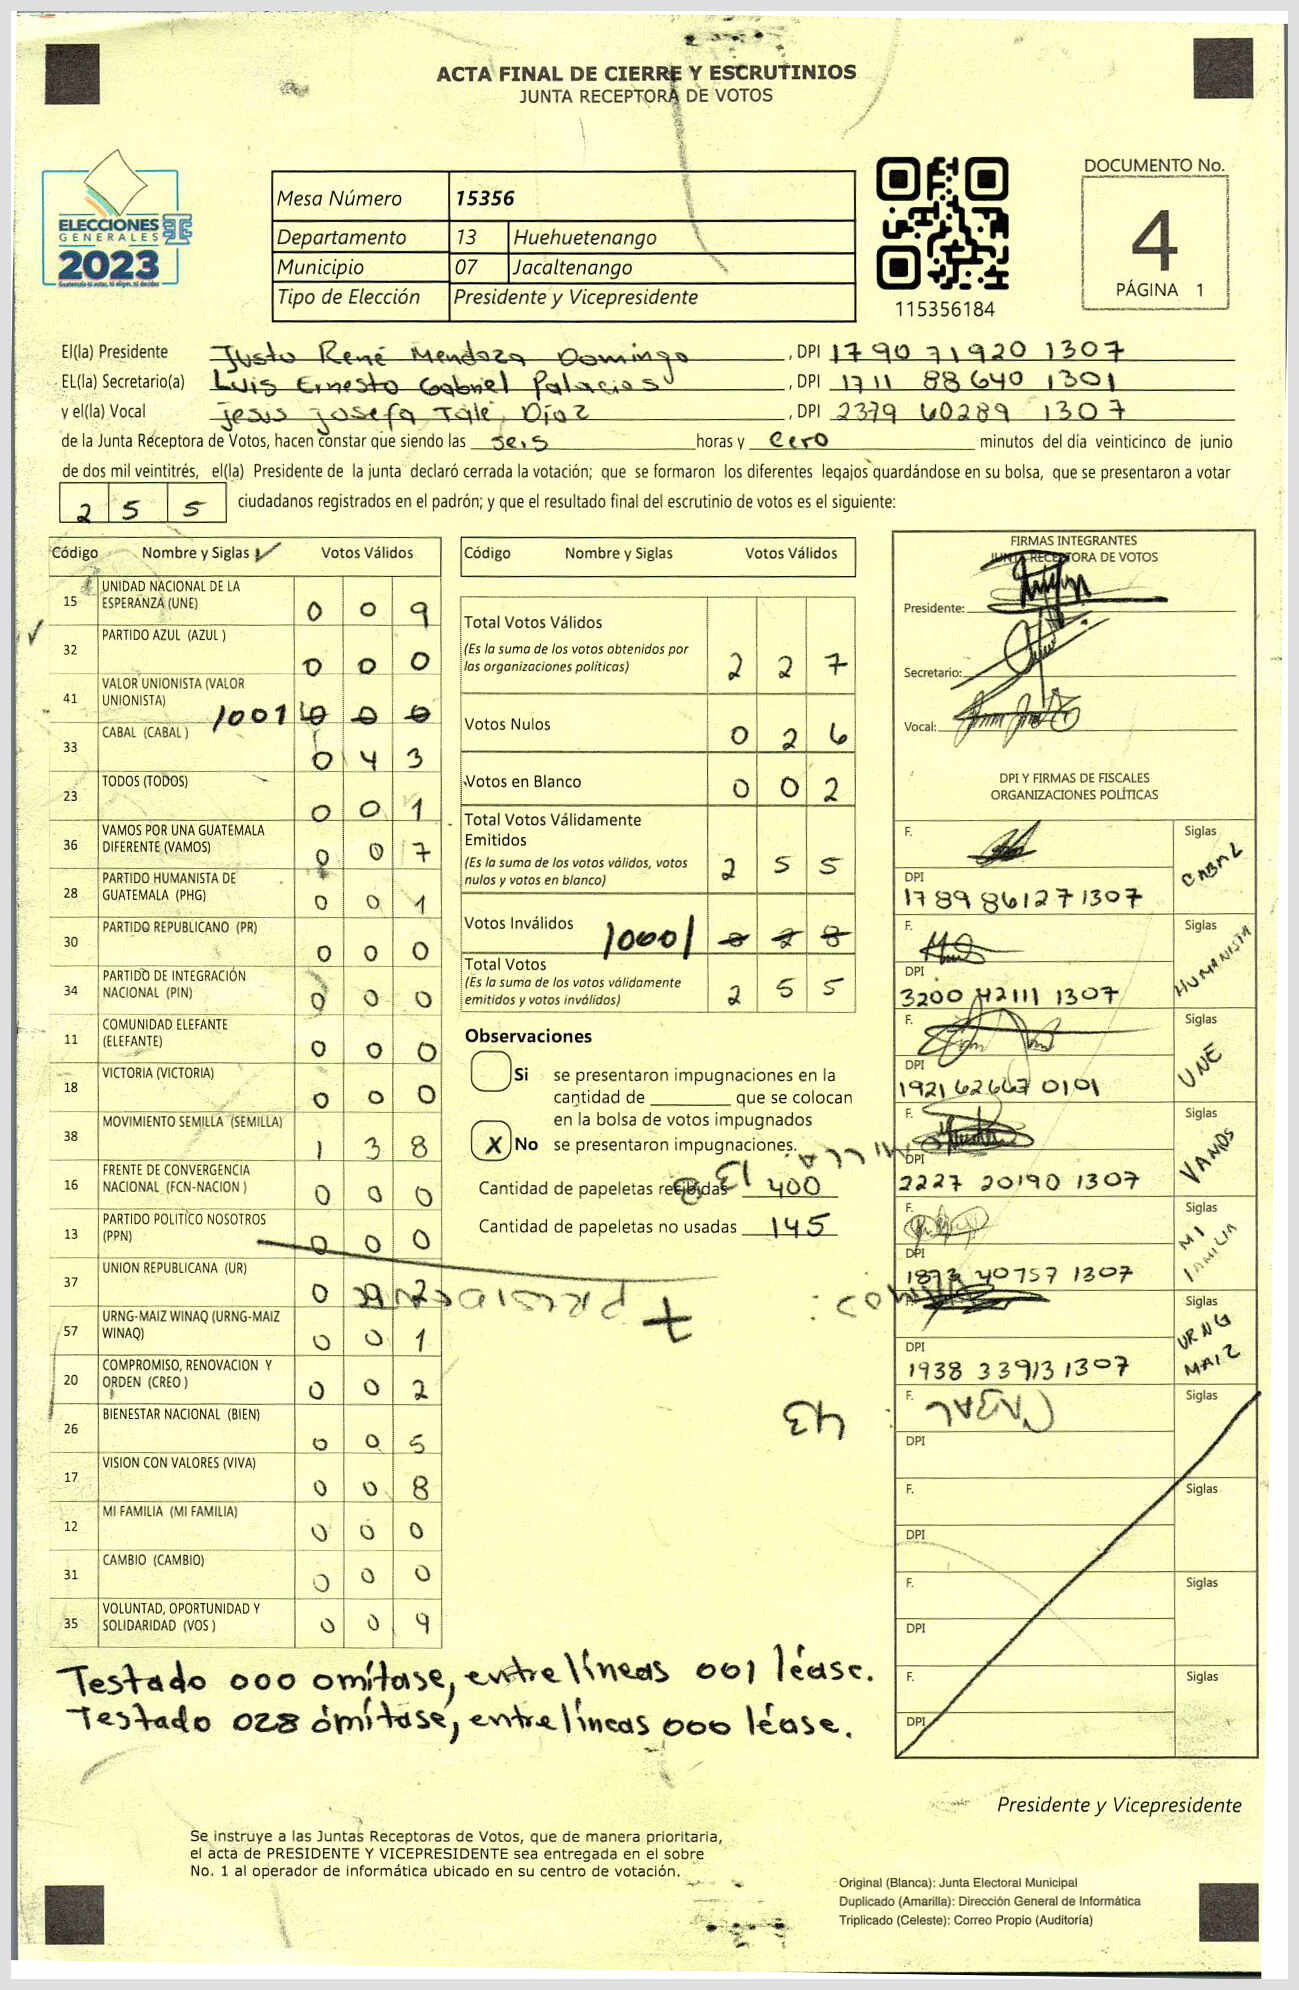 ACTA FINAL DE CIERRE Y ESCRUTINIOS
JUNTA RECEPTORA DE VOTOS
ELECCIONES
GENERALES
2023
Mesa Número 15356
Departamento 13 Huehuetenango
Municipio 07 Jacaltenango
Tipo de Elección Presidente y Vicepresidente
115356184
DOCUMENTO No.
4
PÁGINA 1
El(la) Presidente Justo René Mendoza Domingo, DPI 1790 71920 1307
EL(la) Secretario(a) Luis Ernesto Gabriel Palacios, DPI 1711 88640 1301
y el(la) Vocal Jesus Josefa Talé Díaz, DPI 2379 60289 1307
de la Junta Receptora de Votos, hacen constar que siendo las seis horas y cero minutos del día veinticinco de junio
de dos mil veintitrés, el(la) Presidente de la junta declaró cerrada la votación; que se formaron los diferentes legajos guardándose en su bolsa, que se presentaron a votar
2 5 5 ciudadanos registrados en el padrón; y que el resultado final del escrutinio de votos es el siguiente:
Código Nombre y Siglas Votos Válidos
15 UNIDAD NACIONAL DE LA
ESPERANZA (UNE) 0 0 9
32 PARTIDO AZUL (AZUL ) 0 0 0
41 VALOR UNIONISTA (VALOR
UNIONISTA) /001/ 0 0 0
33 CABAL (CABAL ) 0 4 3
23 TODOS (TODOS) 0 0 1
36 VAMOS POR UNA GUATEMALA
DIFERENTE (VAMOS) 0 0 7
28 PARTIDO HUMANISTA DE
GUATEMALA (PHG) 0 0 1
30 PARTIDO REPUBLICANO (PR) 0 0 0
34 PARTIDO DE INTEGRACIÓN
NACIONAL (PIN) 0 0 0
11 COMUNIDAD ELEFANTE
(ELEFANTE) 0 0 0
18 VICTORIA (VICTORIA) 0 0 0
38 MOVIMIENTO SEMILLA (SEMILLA) 1 3 8
16 FRENTE DE CONVERGENCIA
NACIONAL (FCN-NACION ) 0 0 0
13 PARTIDO POLITICO NOSOTROS
(PPN) 0 0 0
37 UNION REPUBLICANA (UR) 0 2
57 URNG-MAIZ WINAQ (URNG-MAIZ
WINAQ) 0 0 1
20 COMPROMISO, RENOVACION Y
ORDEN (CREO ) 0 0 2
26 BIENESTAR NACIONAL (BIEN) 0 0 5
17 VISION CON VALORES (VIVA) 0 0 8
12 MI FAMILIA (MI FAMILIA) 0 0 0
31 CAMBIO (CAMBIO) 0 0 0
35 VOLUNTAD, OPORTUNIDAD Y
SOLIDARIDAD (VOS ) 0 0 9
Código Nombre y Siglas Votos Válidos
Total Votos Válidos
(Es la suma de los votos obtenidos por
las organizaciones políticas) 2 2 7
Votos Nulos 0 2 6
Votos en Blanco 0 0 2
Total Votos Válidamente
Emitidos
(Es la suma de los votos válidos, votos
nulos y votos en blanco) 2 5 5
Votos Inválidos /000/ 0 2 8
Total Votos
(Es la suma de los votos válidamente
emitidos y votos inválidos) 2 5 5
Observaciones
Si se presentaron impugnaciones en la
cantidad de ________ que se colocan
en la bolsa de votos impugnados
X No se presentaron impugnaciones.
Cantidad de papeletas recibidas 400
Cantidad de papeletas no usadas 145
PRESIDENTE
SEMILLA: 138
VAMOS: 7
CABAL: 43
FIRMAS INTEGRANTES
JUNTA RECEPTORA DE VOTOS
Presidente:
Secretario:
Vocal:
DPI Y FIRMAS DE FISCALES
ORGANIZACIONES POLÍTICAS
F. Siglas CABAL
DPI
1789 86127 1307
F. Siglas HUMANISTA
DPI
3200 42111 1307
F. Siglas UNE
DPI
1921 62667 0101
F. Siglas VAMOS
DPI
2227 20190 1307
F. Siglas MI FAMILIA
DPI
1873 40757 1307
F. Siglas URNG MAIZ
DPI
1938 33913 1307
F. Siglas
DPI
F. Siglas
DPI
F. Siglas
DPI
F. Siglas
DPI
Testado 000 omítase, entrelíneas 001 léase.
Testado 028 omítase, entrelíneas 000 léase.
Presidente y Vicepresidente
Se instruye a las Juntas Receptoras de Votos, que de manera prioritaria,
el acta de PRESIDENTE Y VICEPRESIDENTE sea entregada en el sobre
No. 1 al operador de informática ubicado en su centro de votación.
Original (Blanca): Junta Electoral Municipal
Duplicado (Amarilla): Dirección General de Informática
Triplicado (Celeste): Correo Propio (Auditoría)